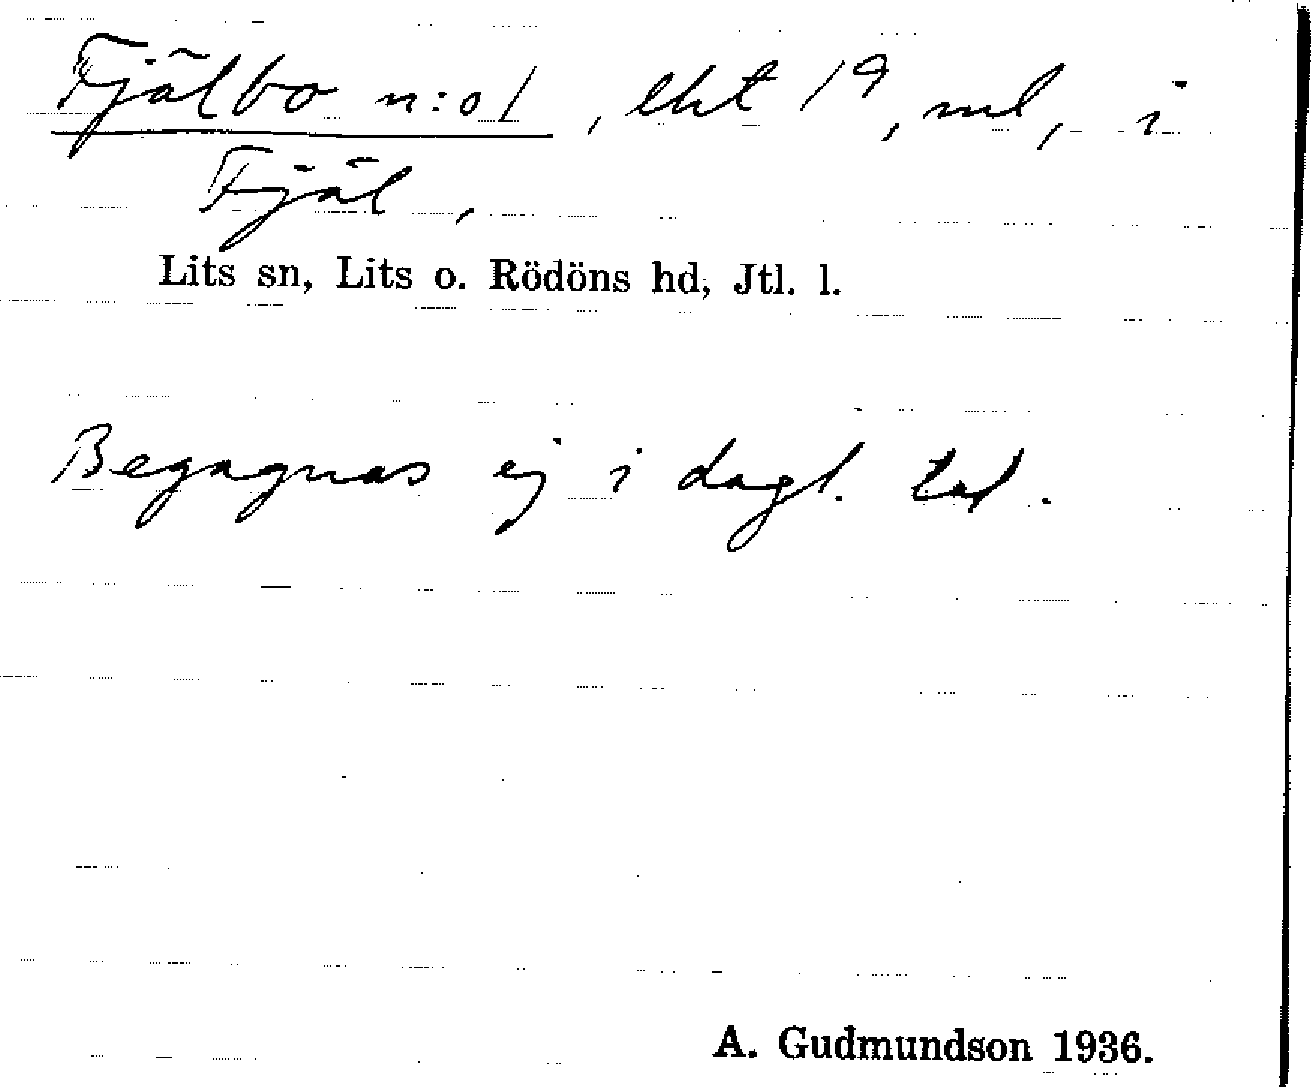 Fjälbo n:o 1, eht 1ª, ml, i
Fjäl,
Lits sn, Lits o. Rödöns hd, Jtl. l.
Begagnas ej i dagl. tal.
A. Gudmundson 1936.